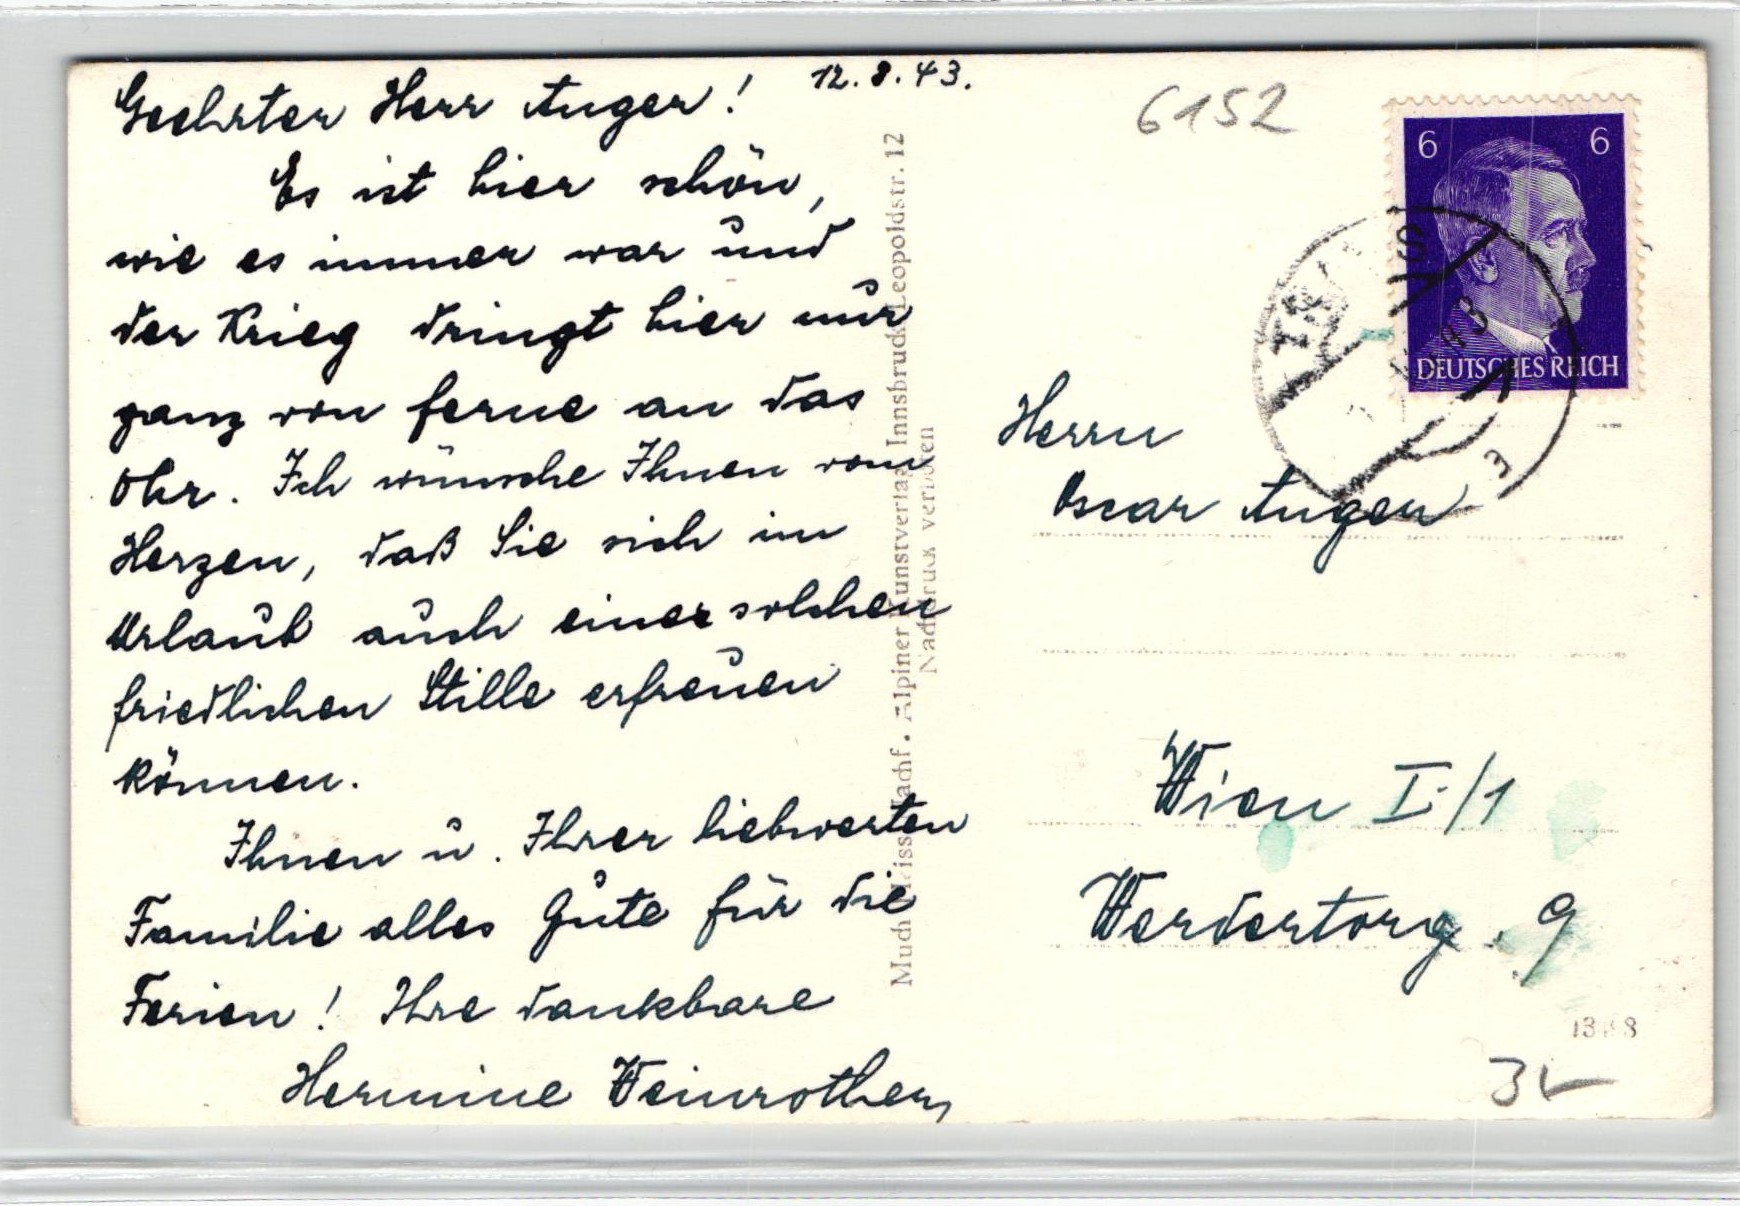 12.8.43.
Geehrter Herr Auger!
Es ist hier schön,
wie es immer war und
der Krieg dringt hier nur
ganz von ferne an das
Ohr. Ich wünsche Ihnen vom
Herzen, daß Sie sich im
Urlaub auch einer solchen
friedlichen Stille erfreuen
können.
Ihnen u. Ihrer liebwerten
Familie alles Gute für die
Ferien! Ihre dankbare
Hermine Weinrother
Alpiner Kunstverlag Innsbruck Leopoldstr. 12
Nachdruck verboten
6152
6 6
DEUTSCHES REICH
Herrn
Oscar Auger
Wien I/1
Werdertorg. 9